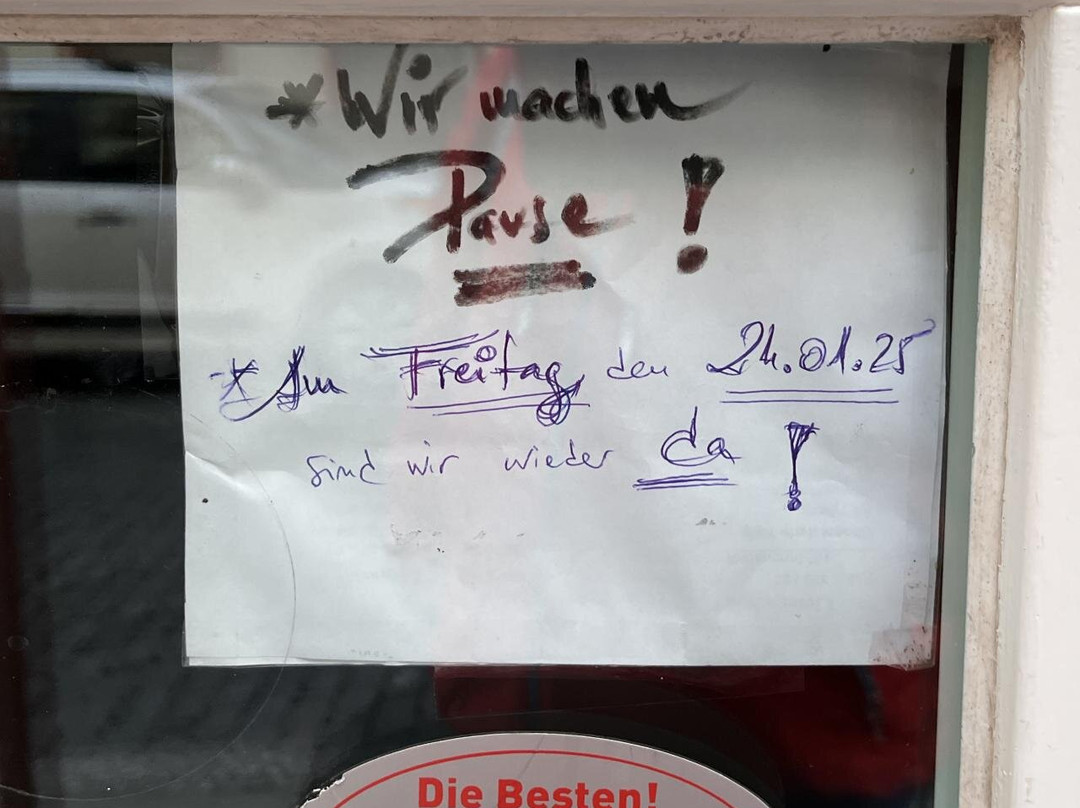 *Wir machen
Pause !
*Am Freitag den 24.01.25
sind wir wieder da !
Die Besten!